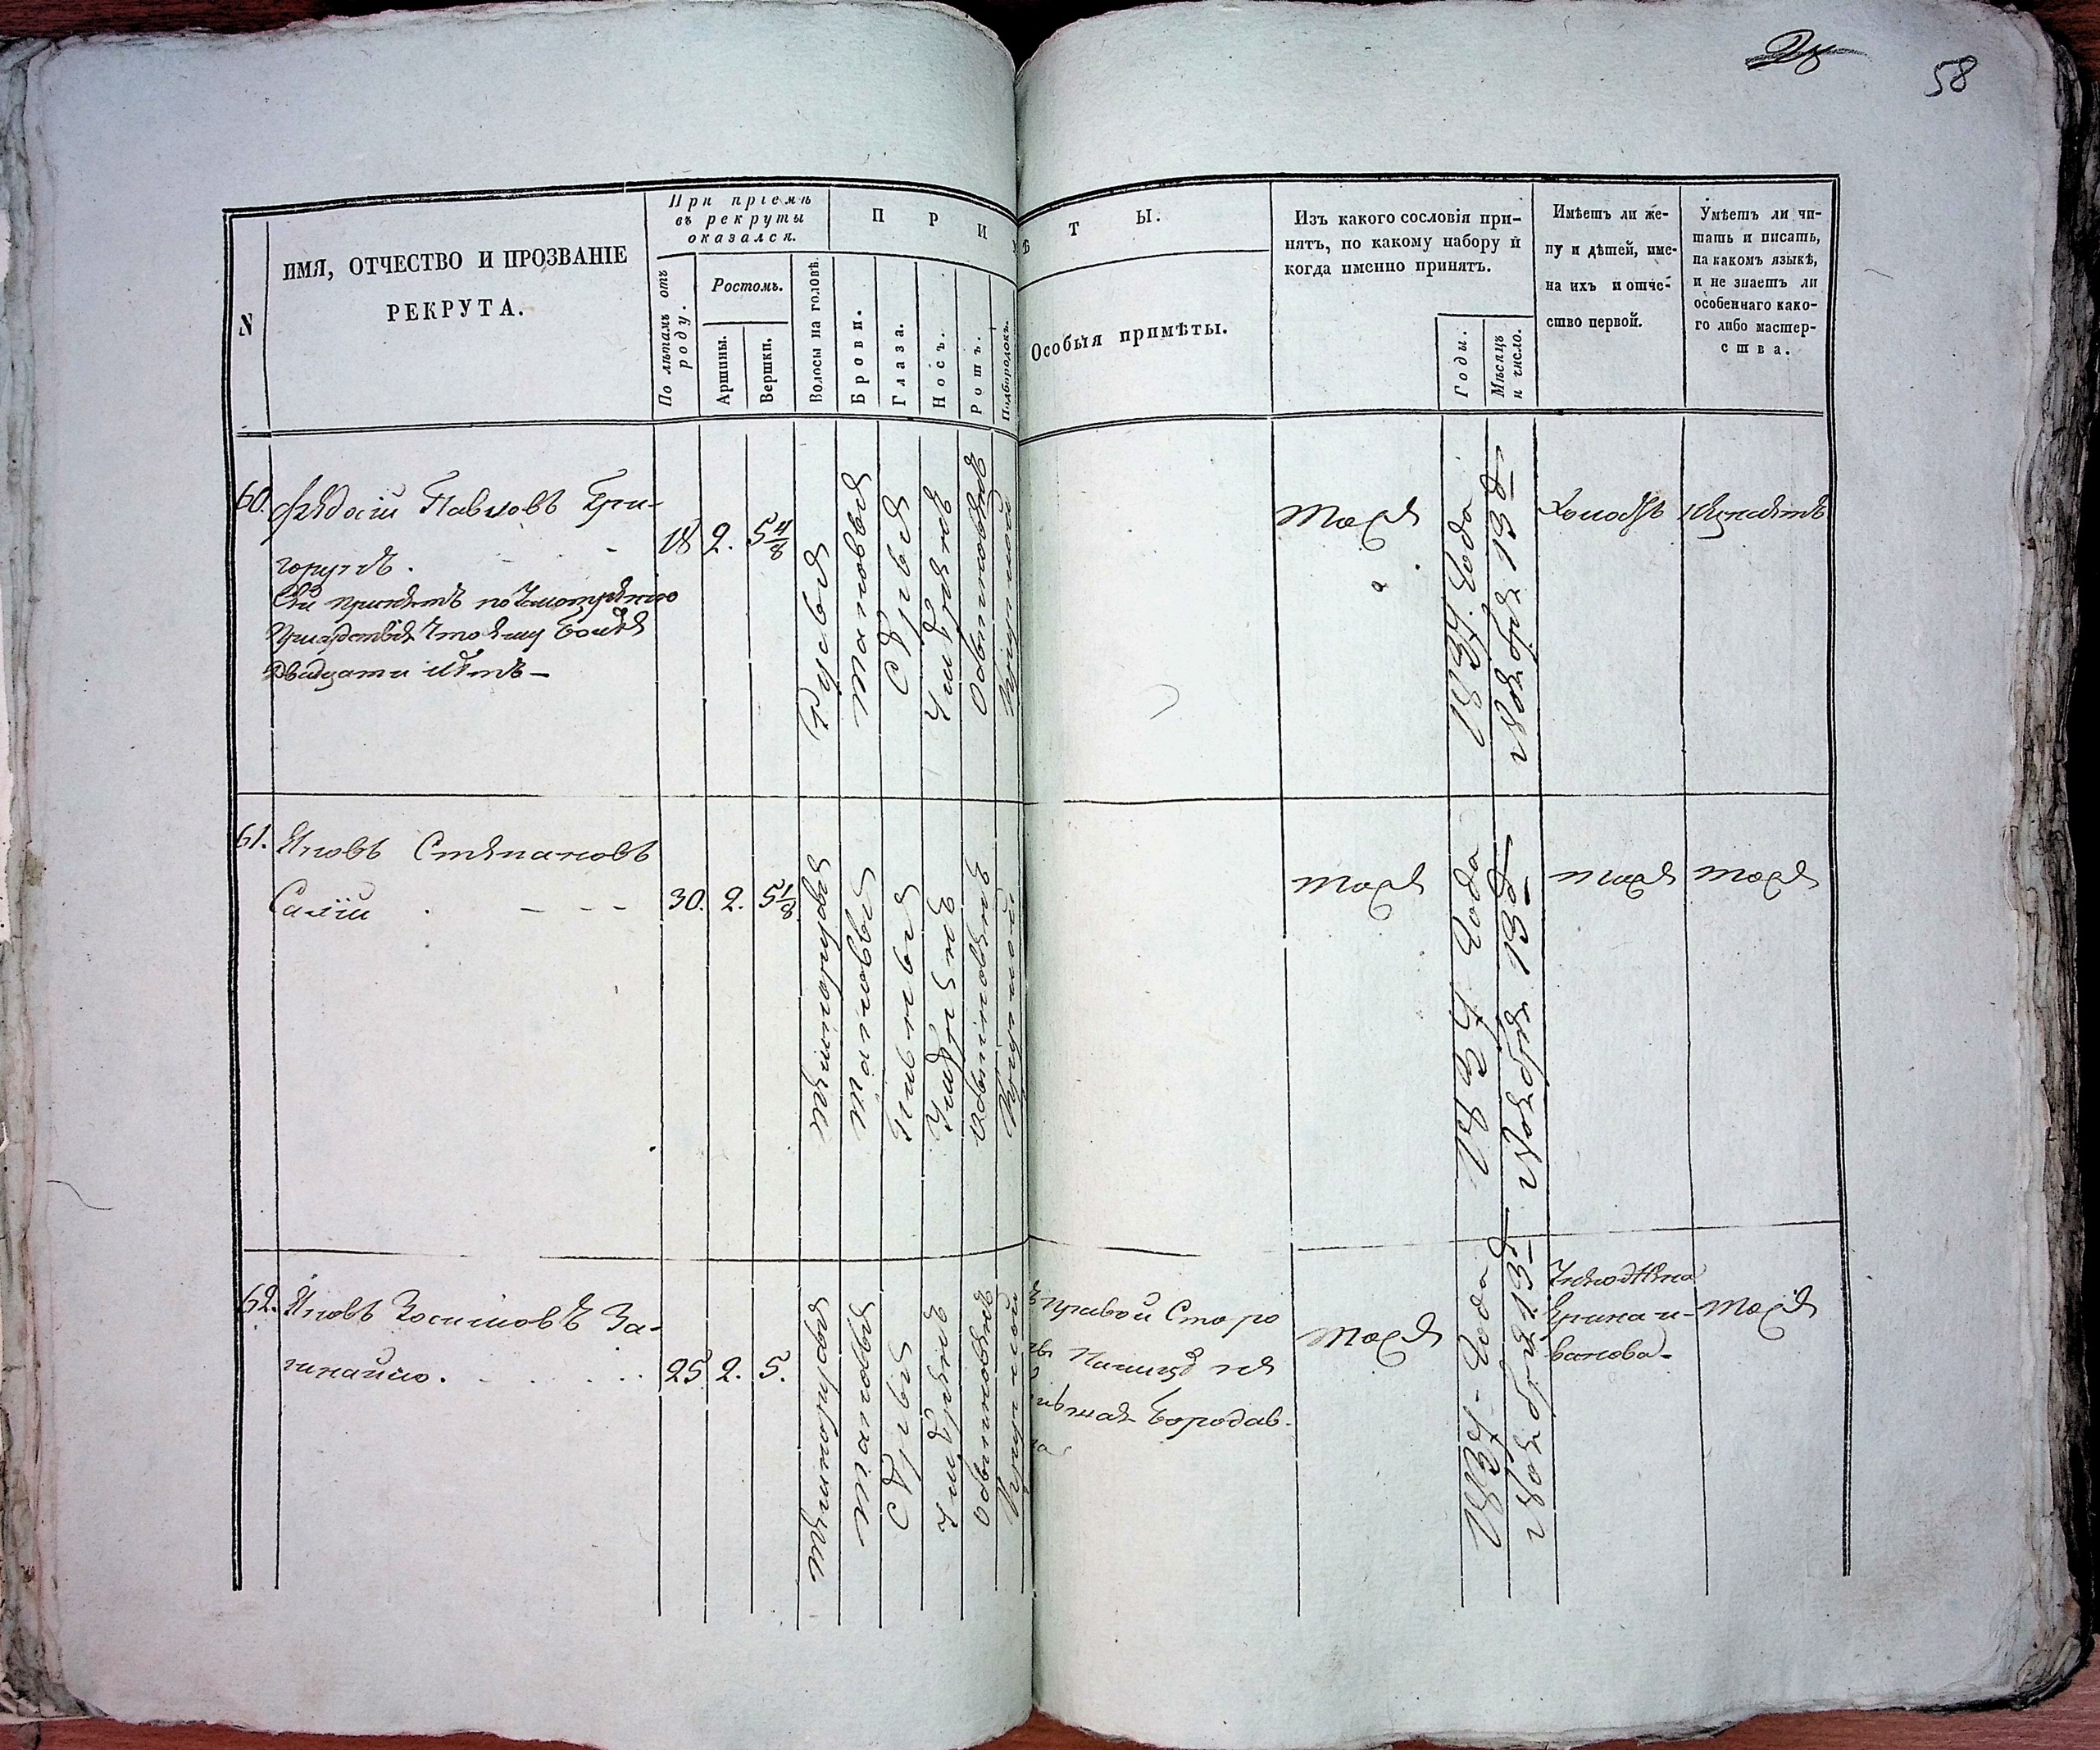 58
N
ИМЯ, ОТЧЕСТВО И ПРОЗВАНІЕ
РЕКРУТА.
При пріемѣ
въ рекруты
оказался.
По лѣтамъ отъ
роду.
Ростомъ.
Аршины.
Вершки.
П Р И М Ѣ Т Ы.
Волосы на головѣ.
Брови.
Глаза.
Носъ.
Ротъ.
Подбородокъ.
Особыя примѣты.
Изъ какого сословія при-
нятъ, по какому набору и
когда именно принятъ.
Годы.
Мѣсяцъ
и число.
Имѣетъ ли же-
ну и дѣтей, име-
на ихъ и отче-
ство первой.
Умѣетъ ли чи-
тать и писать,
на какомъ языкѣ,
и не знаетъ ли
особеннаго како-
го либо мастер-
ства.
60.
Федосій Павловъ
Сей принятъ по усмотренію
присудствія что ему болѣе
двадцати лѣтъ
18
2.
5 4/8
Русыя
таковыя
Сѣрыя
умѣренъ
обыкновенъ
круглой
тоже
1834. Года
Ноября 13 д
Холостъ
незнаетъ
61.
Яковъ Степановъ
30.
2.
5 1/8
темнорусыя
таковыя
умѣренъ
обыкновенъ
круглой
тоже
1834 Года
Ноября 13 д
тоже
тоже
62.
Яковъ Зосимовъ За-
25
2.
5.
темнорусыя
таковыя
Сѣрыя
умѣренъ
обыкновенъ
круглой
правой Сторо
бородав-
ка
тоже
1834 Года
Ноября 13 д
У него жена
Ирина И-
ванова
тоже